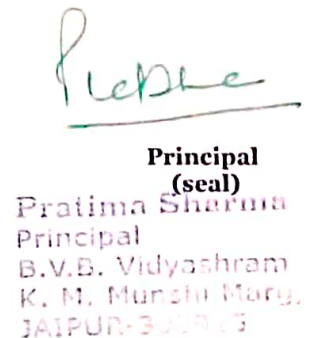 Principal
(seal)
Pratima Sharma
Principal
B.V.B. Vidyashram
K. M. Munshi Marg,
JAIPUR-